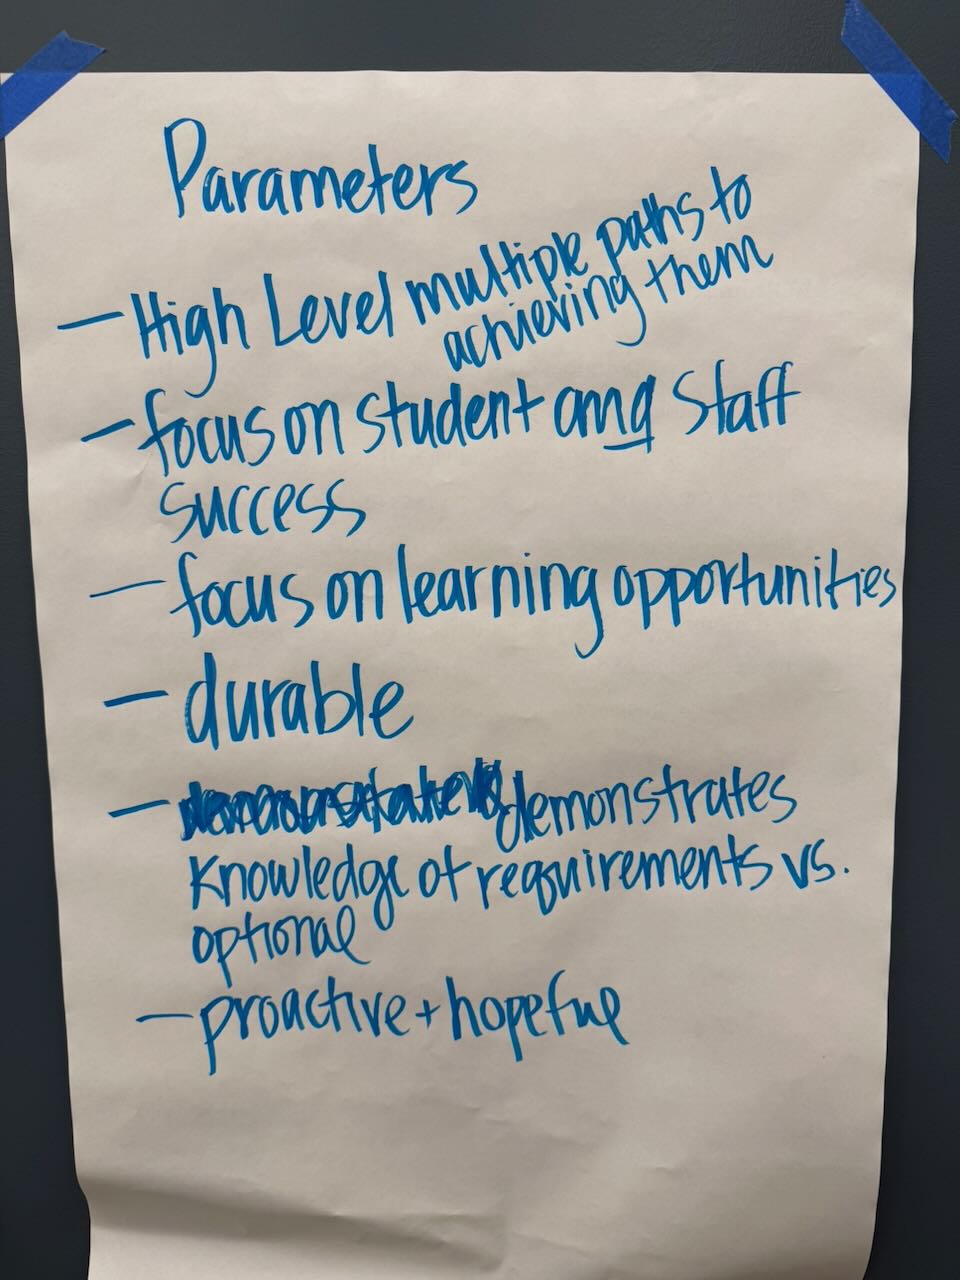 Parameters
- High Level multiple paths to
achieving them
- focus on student and staff
success
- focus on learning opportunities
- durable
- demonstrates
knowledge of requirements vs.
optional
- proactive + hopeful